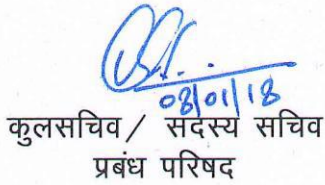 08/01/18
कुलसचिव/ सदस्य सचिव
प्रबंध परिषद